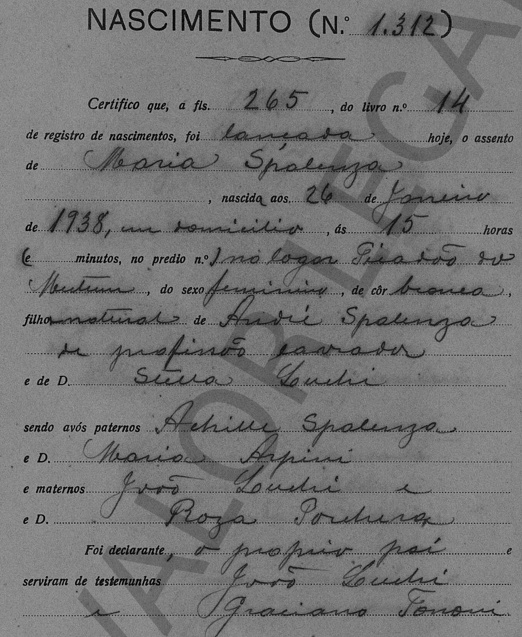 NASCIMENTO (N.º 1.312)
Certifico que, á fls. 265, do livro n.º 14
de registro de nascimentos, foi lançada hoje, o assento
de Maria Spalenza
, nascida aos 26 de Janeiro
de 1938, em domicilio, ás 15 horas
(e minutos, no predio n.º) no logar Picadão do
Mutum, do sexo feminino, de côr branca,
filha natural de André Spalenza
de profissão lavrador
e de D. Stella Luchi
sendo avós paternos Achille Spalenza
e D. Maria Arpini
e maternos João Luchi e
e D. Roza
Foi declarante, o proprio pai e
serviram de testemunhas João Luchi
e Graciano Tononi
VALOR LEGAL